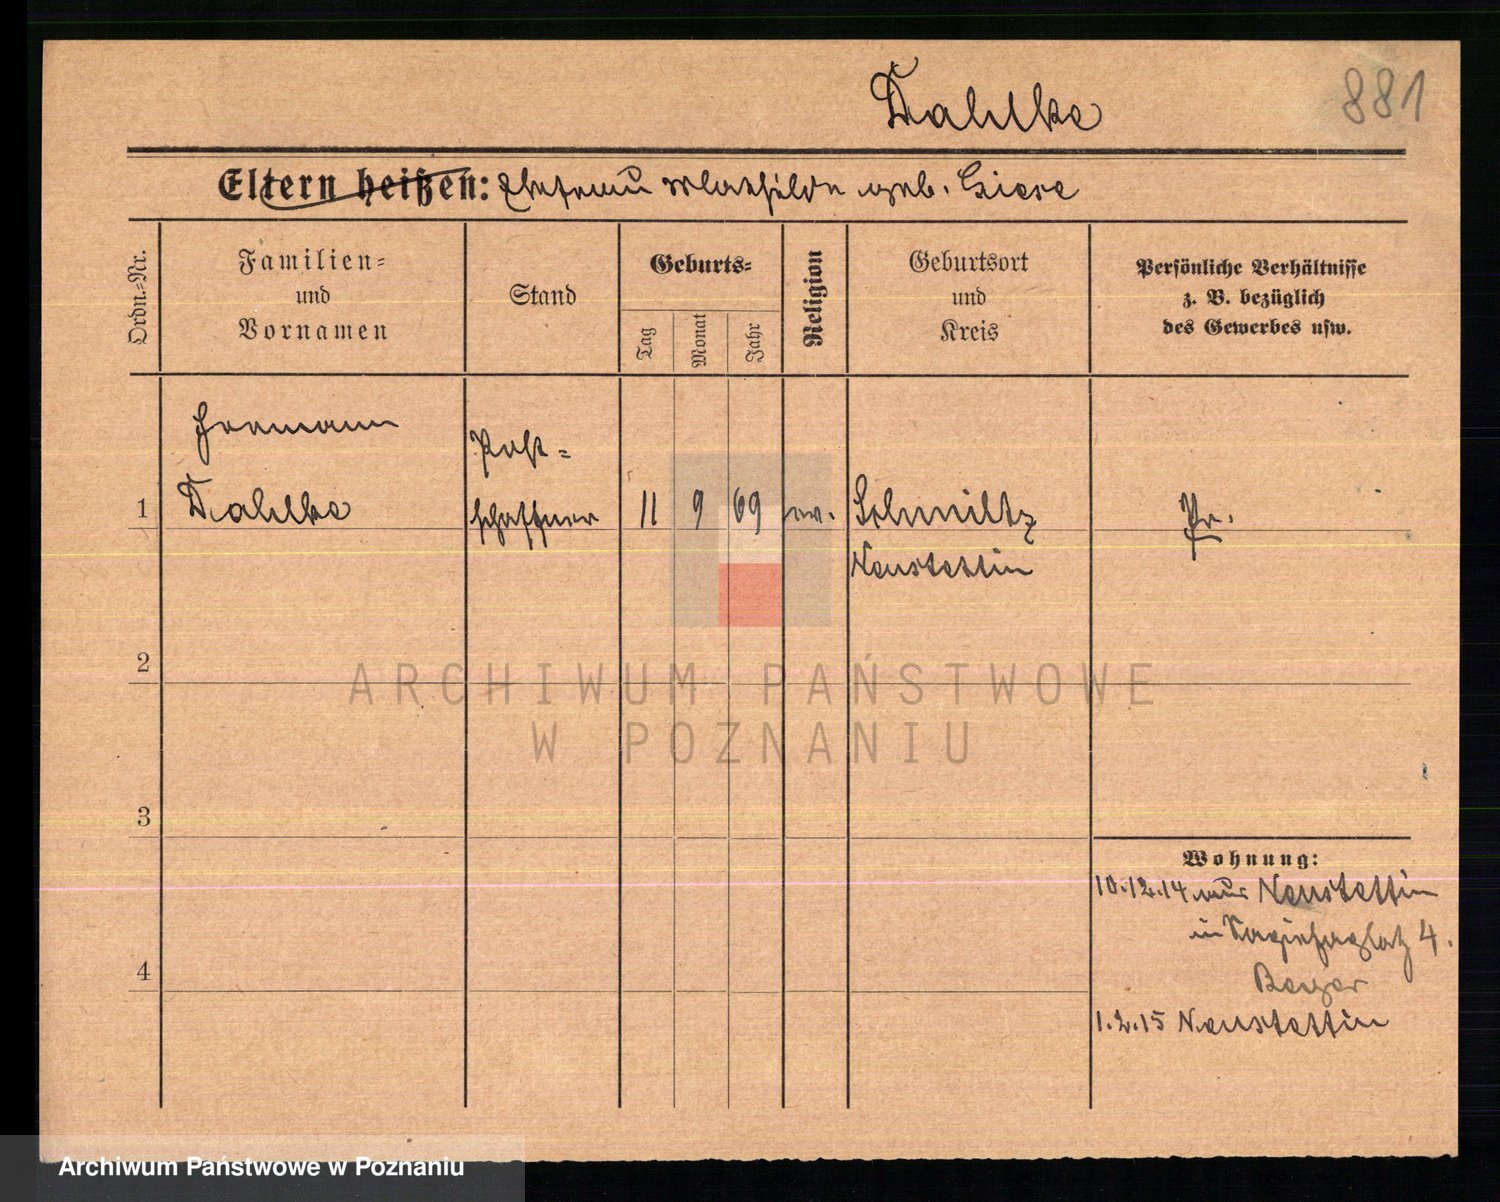 Dahlke
881
Eltern heißen: Ehefrau Mathilde geb. Giese
Ordn.-Nr.
Familien-
und
Vornamen
Stand
Geburts-
Tag
Monat
Jahr
Religion
Geburtsort
und
Kreis
Persönliche Verhältnisse
z. B. bezüglich
des Gewerbes usw.
Hermann
Post-
1 Dahlke schaffner 11 9 69 ev. Schmiltz Pr.
Neustettin
2
ARCHIWUM PAŃSTWOWE
W POZNANIU
3
Wohnung:
10.12.14 aus Neustettin
in 4.
4
Beyer
1.2.15 Neustettin
Archiwum Państwowe w Poznaniu